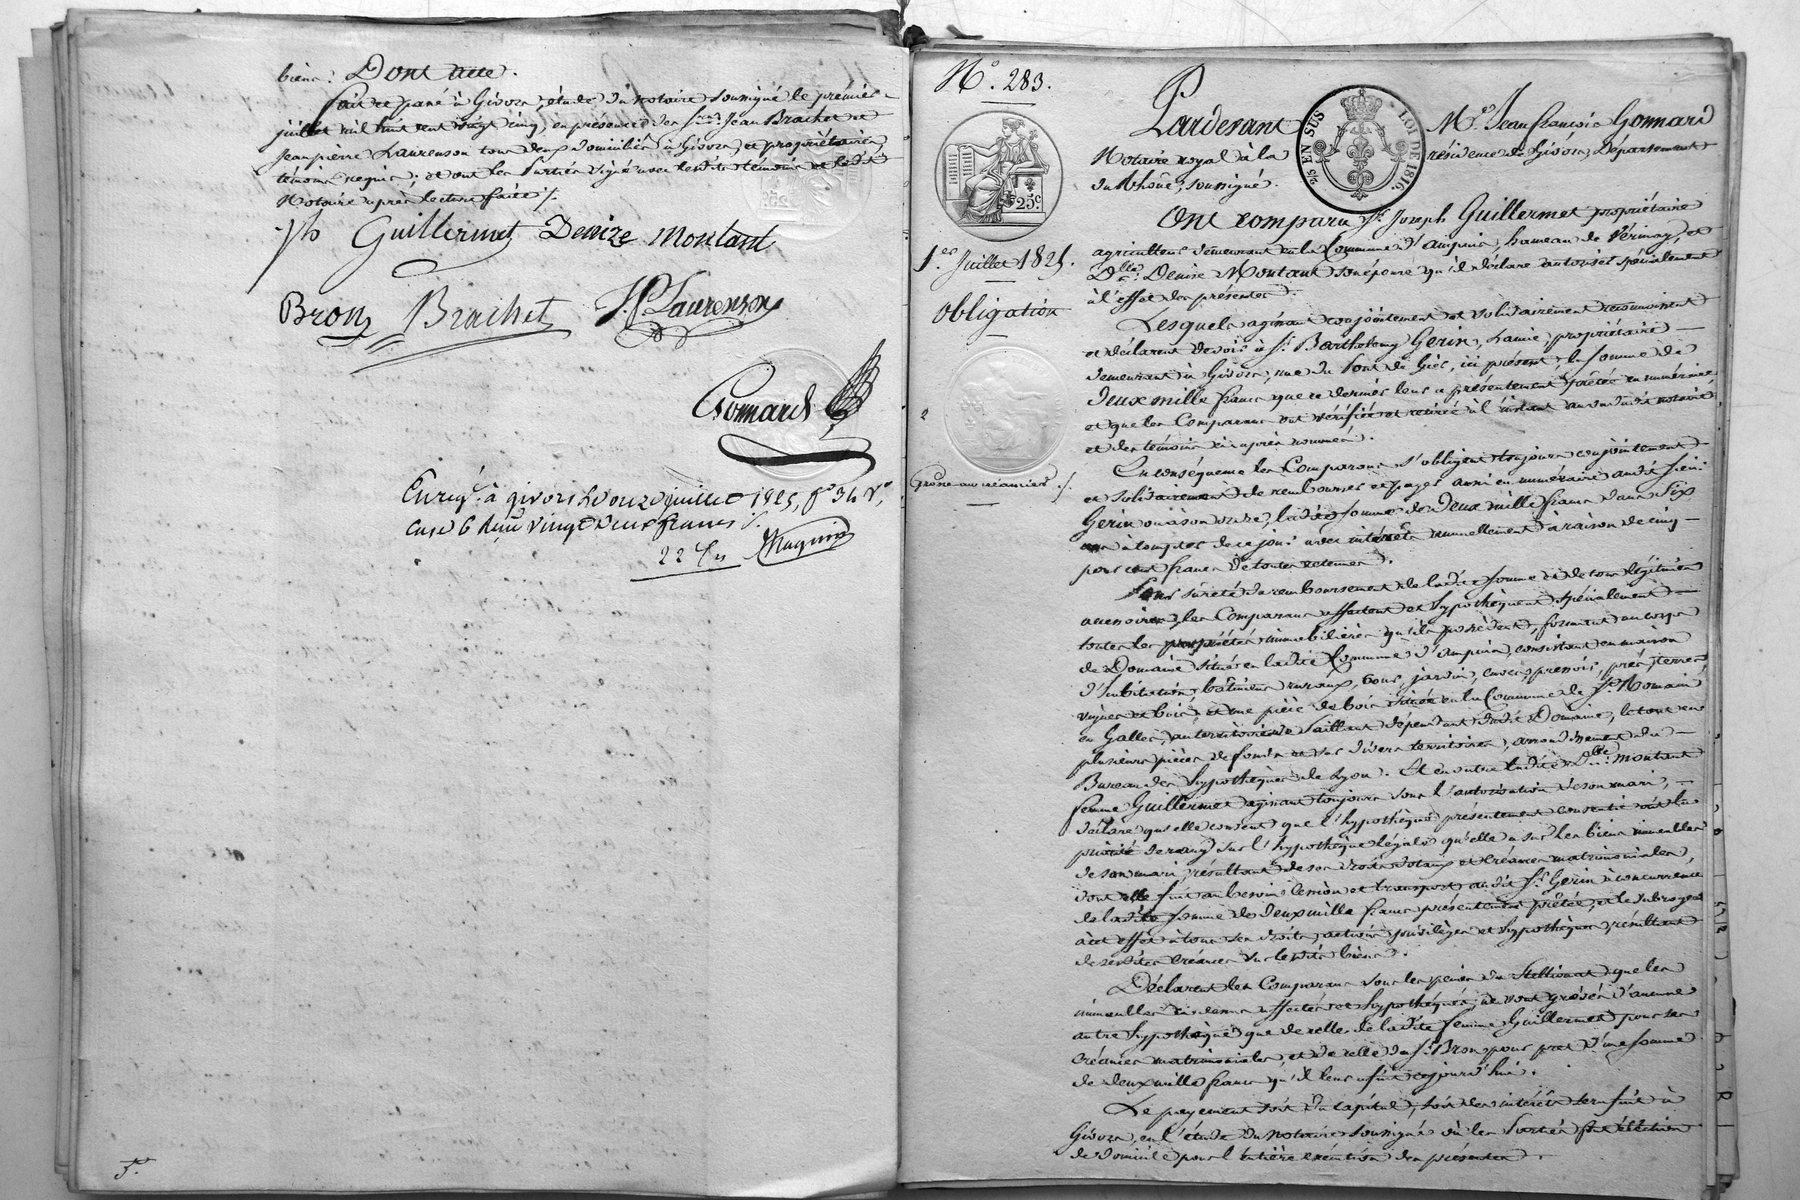 biens. Dont acte.
Fait et passé à Givors, étude du notaire soussigné le premier
juillet mil huit cent vingt cinq, en présence des Srs. Jean Brachet et
Jean pierre Laurenson tous deux domiciliés à Givors, et propriétaires
témoins requis; et ont les Parties signé avec lesdits témoins et ledit
Notaire après lecture faite /.
Jh Guillermet Denize Montant
Bron Brachet J. P. Laurenson
Gonnard
Enreg. à givors le onze juillet 1825, fo 34 Vo,
Case 6 Reçu vingt deux francs /.
22 f
5e
No. 283.
25c.
1er Juillet 1825.
Obligation
2
Grosse au créancier /.
2/5 EN SUS LOI DE 1816
Pardevant Me. Jean françois Gonnard
Notaire royal à la résidence de Givors, Département
du Rhône, soussigné.
Ont comparu Sr. Joseph Guillermet propriétaire
agriculteur demeurant en la Commune d'ampuis, hameau de Vérinay, et
Dlle. Denise Montant son épouse qu'il déclare autoriser spécialement
à l'effet des présentes.
Lesquels agissant conjointement et solidairement reconnaissent
et déclarent devoir à Sr. Barthelemy Gerin, L'ainé, propriétaire
demeurant à Givors, rue du Pont du Gier, ici présent, la somme de
deux mille francs que ce dernier leur a présentement prêtée en numéraire
et que les Comparans ont vérifiée et retirée à l'instant au vu dudit notaire
et des témoins ci après nommés.
En conséquence les Comparans s'obligent toujours conjointement
et solidairement de rembourser et payer aussi en numéraire audit sieur
Gerin ou à son ordre, ladite somme de Deux mille francs dans six
ans à compter de ce jour avec intérêts annuellement à raison de cinq
pour cent francs de toutes retenues.
Pour sûreté du remboursement de ladite somme et de tous légitimes
accessoires, les Comparans affectent et hypothèquent spécialement
toutes les propriétés immobilières qu'ils possèdent, formant un corps
de Domaine situé en ladite Commune d'Ampuis, consistant en maison
d'habitation, bâtimens ruraux, cour, jardin, cuves, pressoir, prés, terres,
vignes et bois, et une pièce de bois située en la Commune de St. Romain
en Galles, au territoire de Saillant dépendant dudit Domaine, le tout en
plusieurs pièces de fonds et sur divers territoires, arrondissement du
Bureau des hypothèques de Lyon. Et en outre ladite Dlle. montant
femme Guillermet agissant toujours sous l'autorisation de son mari,
déclare qu'elle consent que l'hypothèque présentement consentie ait la
priorité de rang sur l'hypothèque légale qu'elle a sur les biens immeubles
de son mari, résultant de ses droits dotaux et Créances matrimoniales,
dont elle fait au besoin cession et transport audit Sr. Gerin à concurrence
de ladite somme de deux mille francs présentement prêtée, et le subroge
à cet effet à tous ses droits, actions, privilèges et hypothèques, résultant
de sesdites Créances sur lesdits biens.
Déclarent les Comparans sous les peines du Stellionat que les
immeubles ci dessus affectés et hypothéqués, ne sont grévés d'aucune
autre hypothèque que de celle de ladite femme Guillermet pour ses
Créances matrimoniales, et de celle du Sr. Bron pour pret d'une somme
de deux mille francs qu'il leur a fait cejourd'hui.
Le payement soit du Capital, soit des intérêts sera fait à
Givors, en l'étude du notaire soussigné où les Parties font élection
de domicile pour l'entière exécution des présentes.